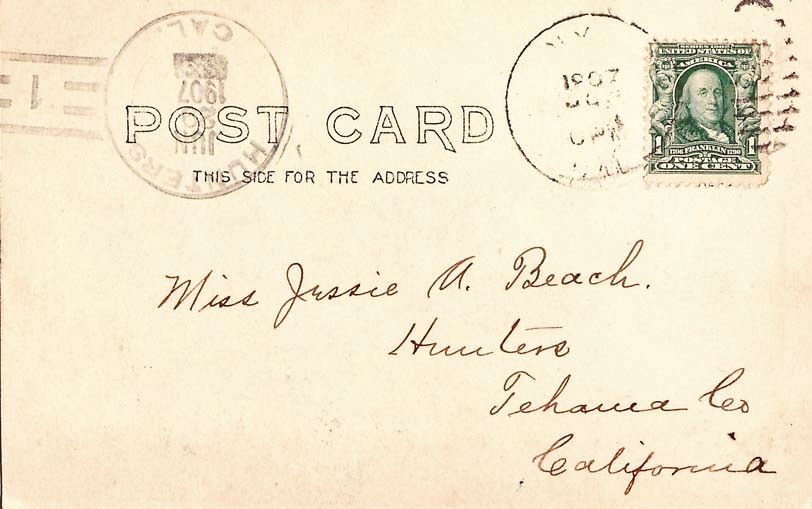 HUNTERS
CAL.
1907
1
POST CARD
THIS SIDE FOR THE ADDRESS
1907
SERIES 1902
UNITED STATES OF
AMERICA
1 1706 FRANKLIN 1790 1
POSTAGE
ONE CENT
Miss Jessie A. Beach.
Hunters
Tehama Co
California